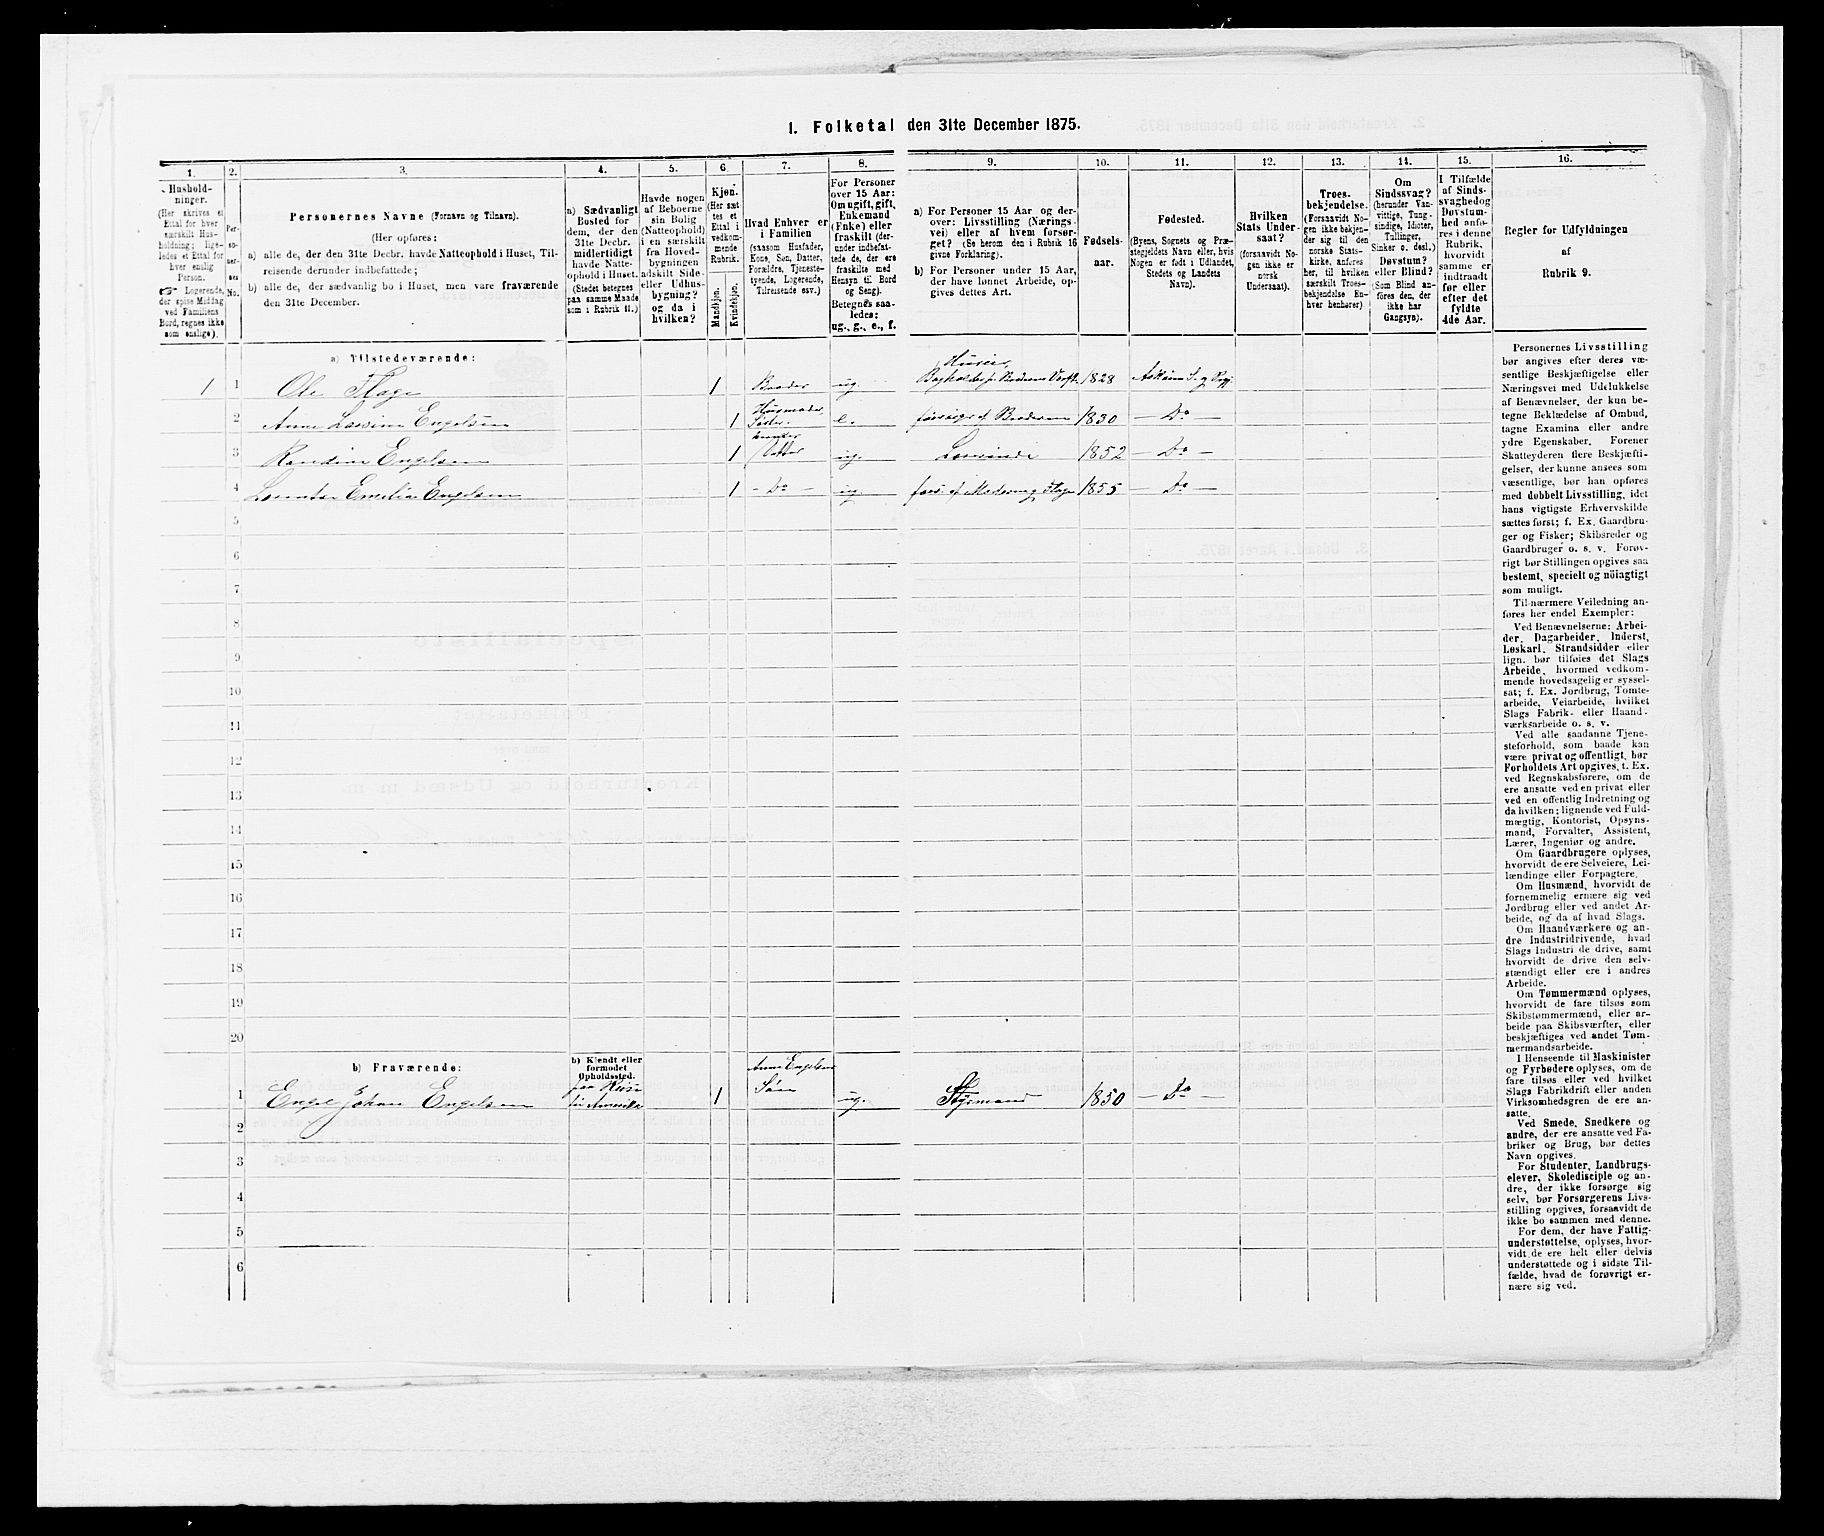 1. Folketal den 31te December 1875.
1. 2. 3. 4. 5. 6. 7. 8. 9. 10. 11. 12. 13. 14. 15. 16.
Hushold-
ninger.
(Her skrives et
Ettal for hver
særskilt Hus-
holdning; lige-
ledes et Ettal for
hver enslig
Person.
☞ Logerende,
der spise Middag
ved Familiens
Bord, regnes ikke
som enslige).
Per-
so-
ner-
nes
No.
Personernes Navne (Fornavn og Tilnavn).
(Her opføres:
a) alle de, der den 31te Decbr. havde Natteophold i Huset, Til-
reisende derunder indbefattede;
b) alle de, der sædvanlig bo i Huset, men vare fraværende
den 31te December.
a) Sædvanligt
Bosted for
dem, der den
31te Decbr.
midlertidigt
havde Natte-
ophold i Huset.
(Stedet betegnes
paa samme Maade
som i Rubrik 11.)
Havde nogen
af Beboerne
sin Bolig
(Natteophold)
i en særskilt
fra Hoved-
bygningen
adskilt Side-
eller Udhus-
bygning?
og da i
hvilken?
Kjøn.
(Her sæt-
tes et
Ettal i
vedkom-
mende
Rubrik.
Mandkjøn.
Kvindekjøn.
Hvad Enhver er
i Familien
(saasom Husfader,
Kone, Søn, Datter,
Forældre, Tjeneste-
tyende, Logerende,
Tilreisende osv.)
For Personer
over 15 Aar:
Om ugift, gift,
Enkemand
(Enke) eller
fraskilt (der-
under indbefat-
tede de, der ere
fraskilte med
Hensyn til Bord
og Seng).
Betegnes saa-
ledes:
ug., g., e., f.
a) For Personer 15 Aar og der-
over: Livsstilling (Nærings-
vei) eller af hvem forsør-
get? (Se herom den i Rubrik 16
givne Forklaring).
b) For Personer under 15 Aar,
der have lønnet Arbeide, op-
gives dettes Art.
Fødsels-
aar.
Fødested.
(Byens, Sognets og Præ-
stegjeldets Navn eller, hvis
Nogen er født i Udlandet,
Stedets og Landets
Navn).
Hvilken
Stats Under-
saat?
(forsaavidt No-
gen ikke er
norsk
Undersaat).
Troes-
bekjendelse.
(Forsaavidt No-
gen ikke bekjen-
der sig til den
norske Stats-
kirke, anføres
her, til hvilken
særskilt Troes-
bekjendelse En-
hver henhører).
Om
Sindssvag?
(herunder Van-
vittige, Tung-
sindige, Idioter,
Tullinger,
Sinker o. desl.)
Døvstum?
eller Blind?
(Som Blind an-
føres den, der
ikke har
Gangsyn).
I Tilfælde
af Sinds-
svaghed og
Døvstum-
hed anfø-
res i denne
Rubrik,
hvorvidt
samme er
indtraadt
før eller
efter det
fyldte
4de Aar.
Regler for Udfyldningen
af
Rubrik 9.
a) Tilstedeværende:
1 1 Ole Flage 1 Broder ug. Huseier, 1828
2 Anne Engelsen 1 Husmoder, Søster e. forsørges af Broderen 1830 – Do –
3 Engelsen 1 Datter ug. 1852 – Do –
4 Emelie Engelsen 1 – Do – ug. fors. af Moderen og Flage 1855 – Do –
5
6
7
8
9
10
11
12
13
14
15
16
17
18
19
20
b) Fraværende:
b) Kjendt eller
formodet
Opholdssted.
1 Engel Johan Engelsen paa Reise til Amerika 1 Anne Engelsens Søn ug. Styrmand 1850 – Do –
2
3
4
5
6
Personernes Livsstilling
bør angives efter deres væ-
sentlige Beskjæftigelse eller
Næringsvei med Udelukkelse
af Benævnelser, der kun be-
tegne Beklædelse af Ombud,
tagne Examina eller andre
ydre Egenskaber. Forener
Skatteyderen flere Beskjæfti-
gelser, der kunne ansees som
væsentlige, bør han opføres
med dobbelt Livsstilling, idet
hans vigtigste Erhvervskilde
sættes først; f. Ex. Gaardbru-
ger og Fisker; Skibsreder og
Gaardbruger o. s. v. Forøv-
rigt bør Stillingen opgives saa
bestemt, specielt og nöiagtigt
som muligt.
Til nærmere Veiledning an-
føres her endel Exempler:
Ved Benævnelserne: Arbei-
der, Dagarbeider, Inderst,
Løskarl, Strandsidder eller
lign. bør tilføies det Slags
Arbeide, hvormed vedkom-
mende hovedsagelig er syssel-
sat; f. Ex. Jordbrug, Tomte-
arbeide, Veiarbeide, hvilket
Slags Fabrik- eller Haand-
værksarbeide o. s. v.
Ved alle saadanne Tjene-
steforhold, som baade kan
være privat og offentligt, bør
Forholdets Art opgives, t. Ex.
ved Regnskabsførere, om de
ere ansatte ved en privat eller
ved en offentlig Indretning og
da hvilken; lignende ved Fuld-
mægtig, Kontorist, Opsyns-
mand, Forvalter, Assistent,
Lærer, Ingeniør og andre.
Om Gaardbrugere oplyses,
hvorvidt de ere Selveiere, Lei-
lændinge eller Forpagtere.
Om Husmænd, hvorvidt de
fornemmelig ernære sig ved
Jordbrug eller ved andet Ar-
beide, og da af hvad Slags.
Om Haandværkere og an-
dre Industridrivende, hvad
Slags Industri de drive, samt
hvorvidt de drive den selv-
stændigt eller ere i andres
Arbeide.
Om Tømmermænd oplyses,
hvorvidt de fare tilsøs som
Skibstømmermænd, eller ar-
beide paa Skibsværfter, eller
beskjæftiges ved andet Tøm-
mermandsarbeide.
I Henseende til Maskinister
og Fyrbødere oplyses, om de
fare tilsøs eller ved hvilket
Slags Fabrikdrift eller anden
Virksomhedsgren de ere an-
satte.
Ved Smede, Snedkere og
andre, der ere ansatte ved Fa-
briker og Brug, bør dettes
Navn opgives.
For Studenter, Landbrugs-
elever, Skoledisciple og an-
dre, der ikke forsørge sig
selv, bør Forsørgerens Livs-
stilling opgives, forsaavidt de
ikke bo sammen med denne.
For dem, der have Fattig-
understøttelse, oplyses, hvor-
vidt de ere helt eller delvis
understøttede og i sidste Til-
fælde, hvad de forøvrigt er-
nære sig ved.